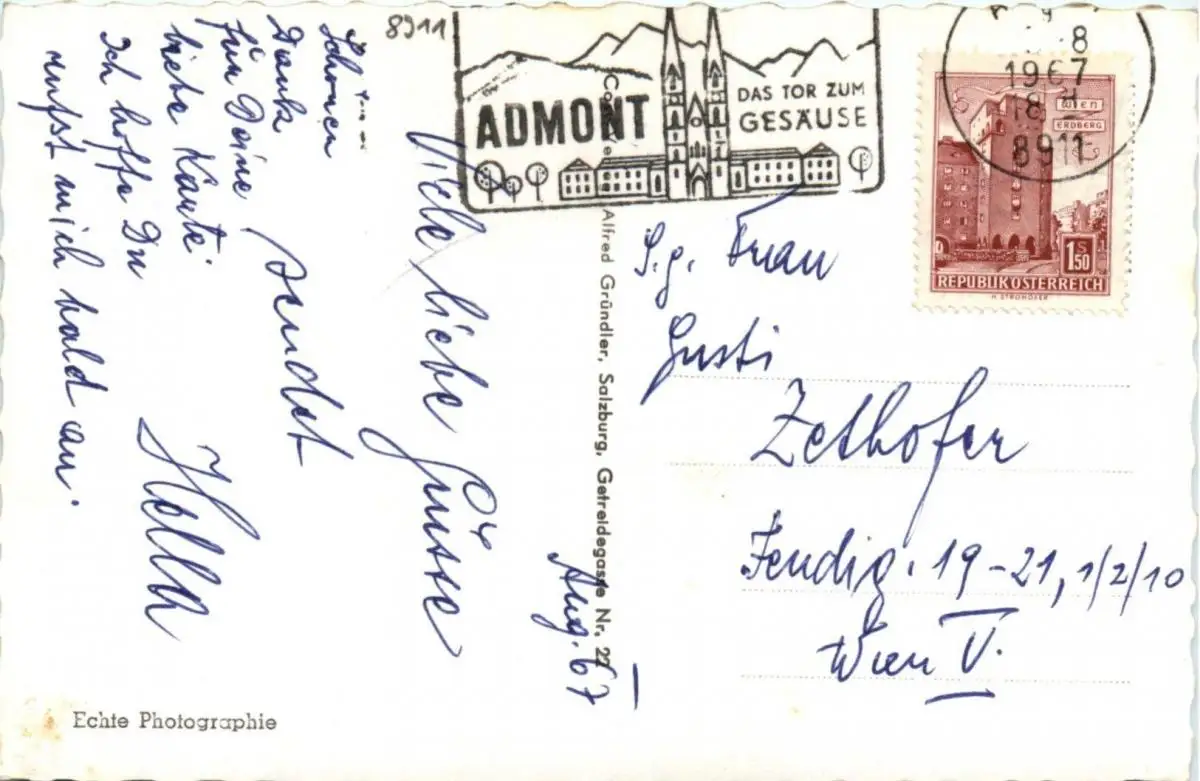 8911
ADMONT
DAS TOR ZUM
GESÄUSE
8
1967
18
8911
WIEN
ERDBERG
1 S 50
REPUBLIK ÖSTERREICH
H. STROHOFER
Viele liebe Grüsse
sendet
Hella
Schönen
Dank
für Deine
liebe Karte.
Ich hoffe Du
rufst mich bald an.
Aug. 67
Alfred Gründler, Salzburg, Getreidegasse Nr. 22
S.g. Frau
Gusti
Zethofer
Fendig. 19-21, 1/2/10
Wien V.
Echte Photographie